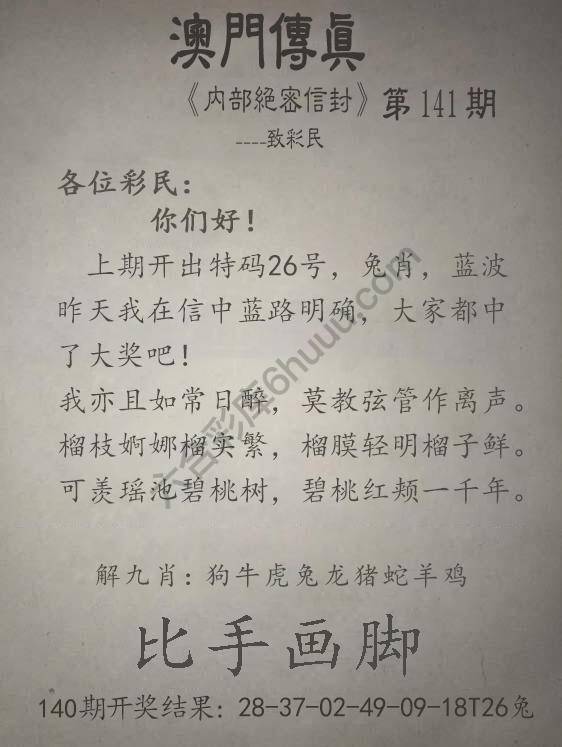 澳門傳真
《内部絕密信封》第141期
----致彩民
各位彩民：
你们好！
上期开出特码26号，兔肖，蓝波
昨天我在信中蓝路明确，大家都中
了大奖吧！
我亦且如常日醉，莫教弦管作离声。
榴枝婀娜榴实繁，榴膜轻明榴子鲜。
可羡瑶池碧桃树，碧桃红颊一千年。
解九肖：狗牛虎兔龙猪蛇羊鸡
比手画脚
140期开奖结果：28-37-02-49-09-18T26兔
六合彩库6huuu.com